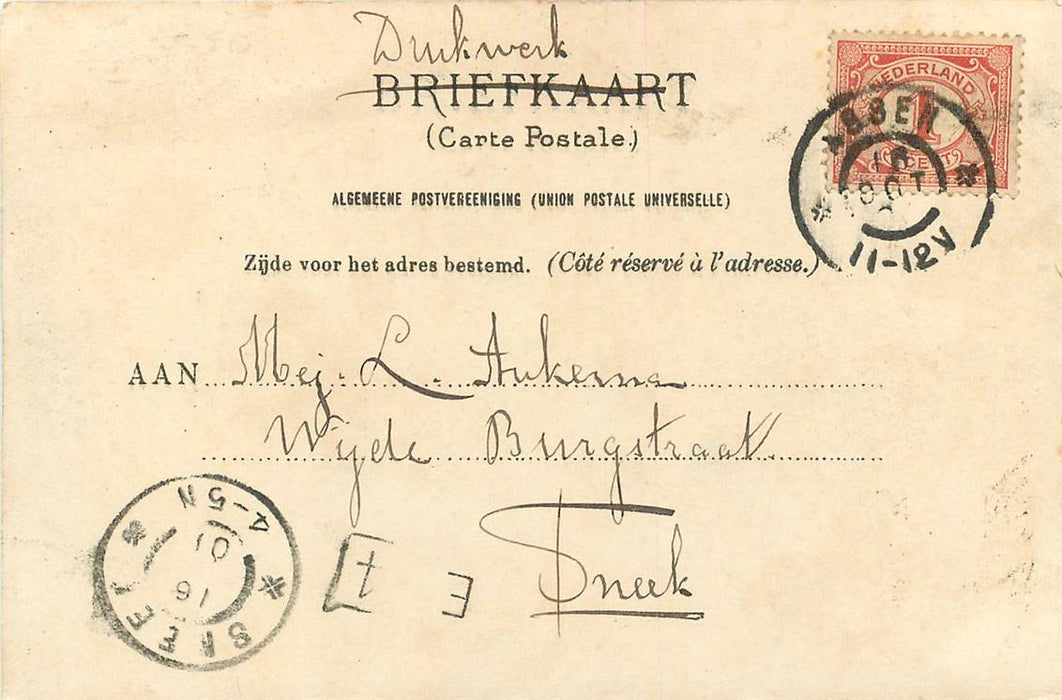 Drukwerk
BRIEFKAART
(Carte Postale.)
ALGEMEENE POSTVEREENIGING (UNION POSTALE UNIVERSELLE)
Zijde voor het adres bestemd. (Côté réservé à l'adresse.)
NEDERLAND
1
CENT
ASSEN
OCT
11-12V
AAN Mej. L. Ankema
Wijde Burgstraat
Sneek
SNEEK
4-5N
E